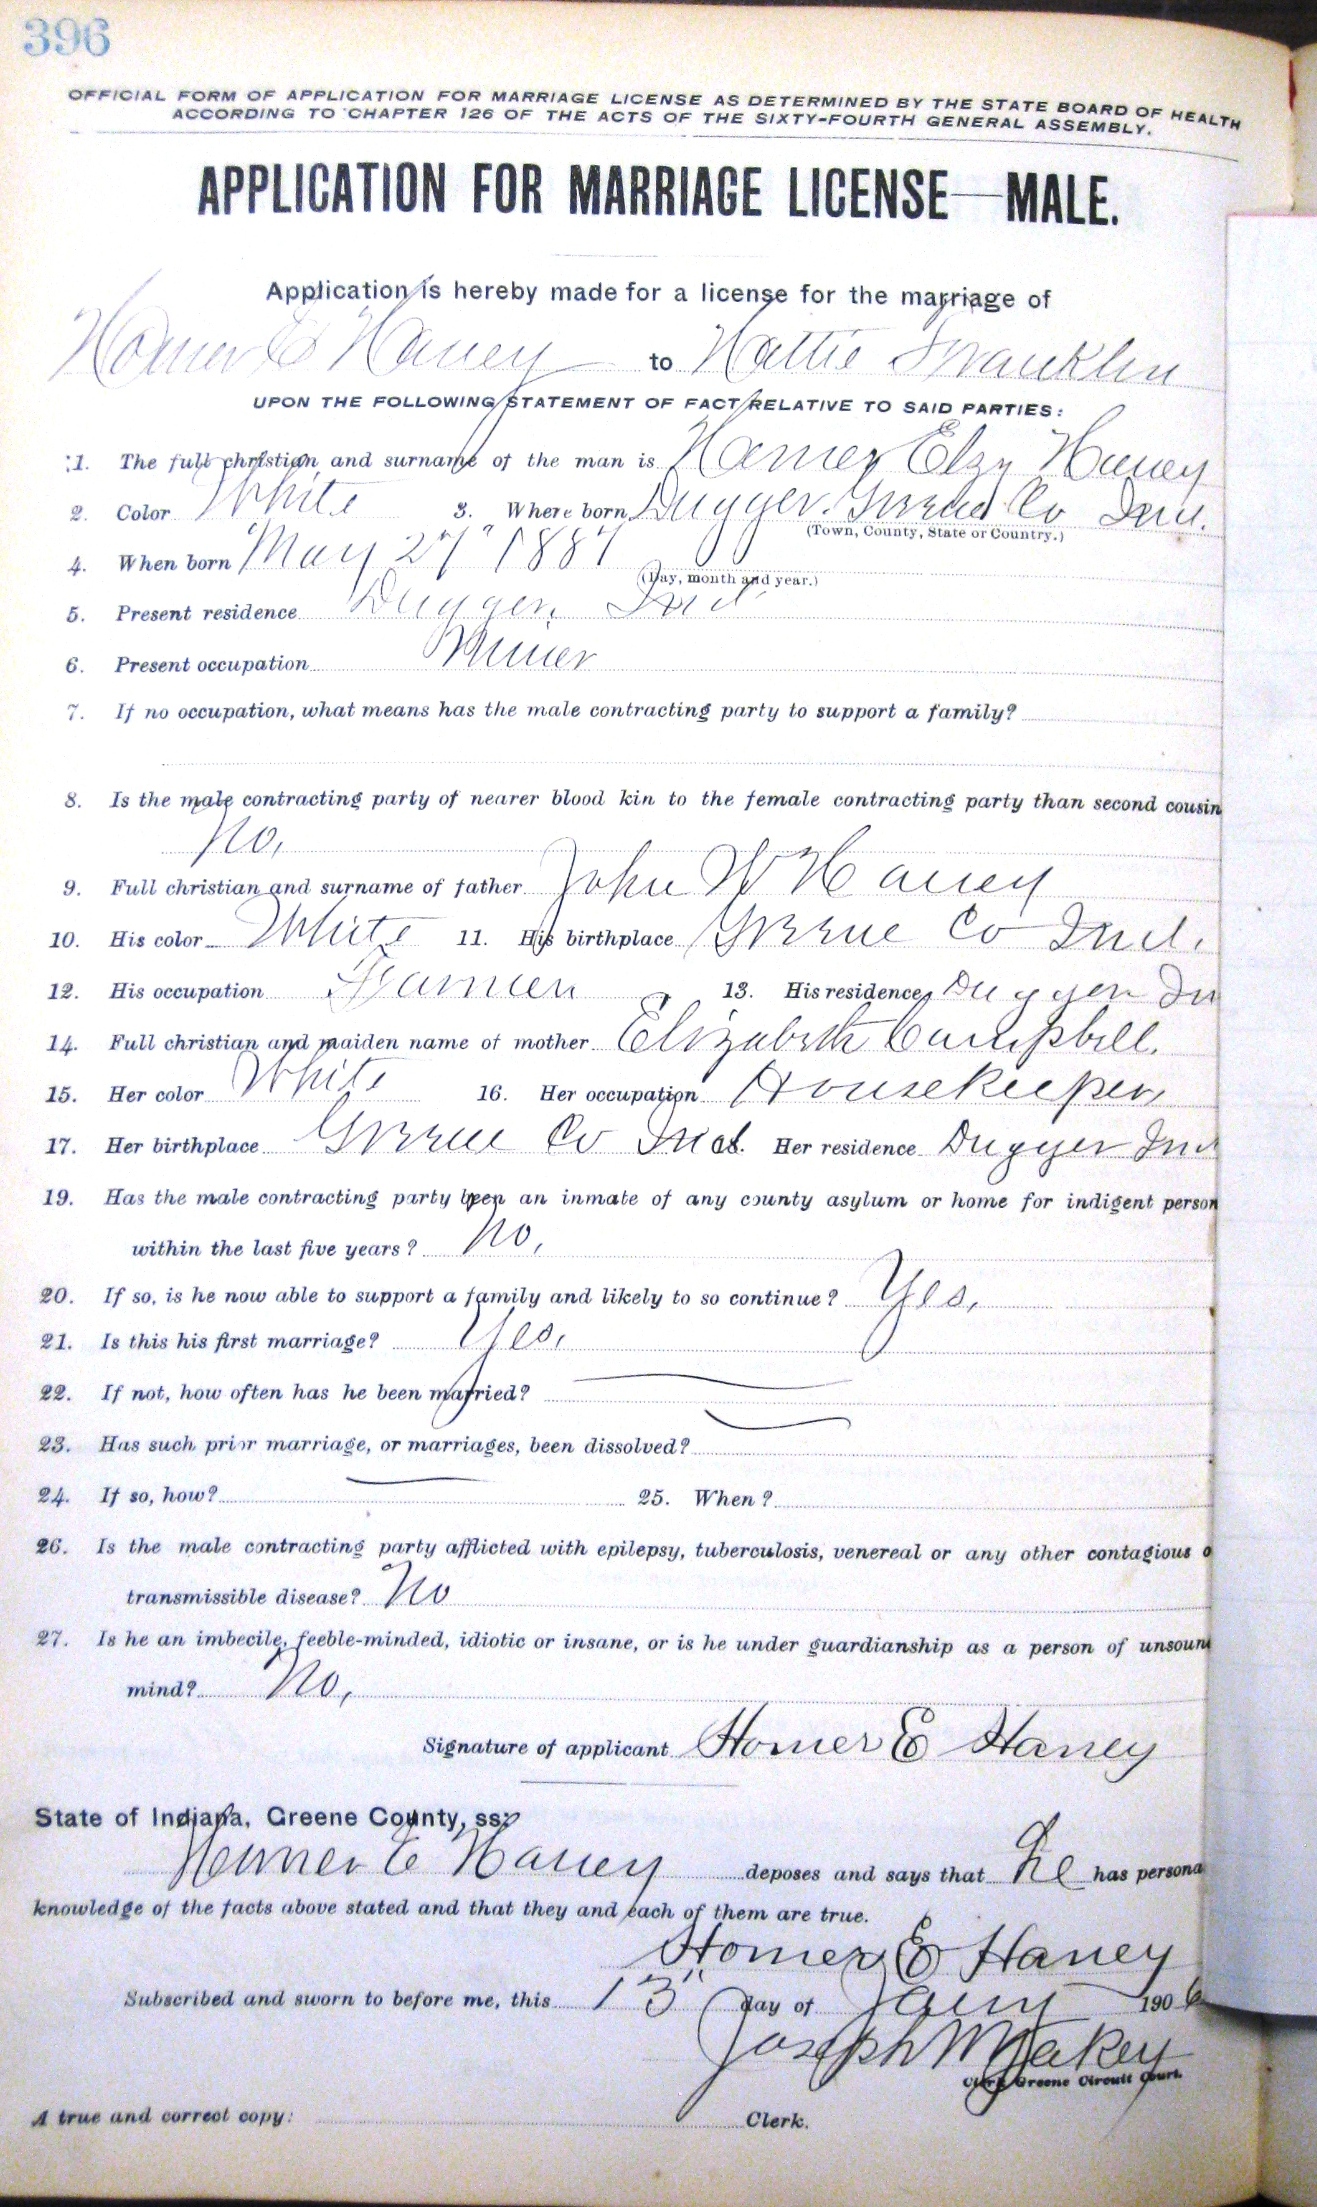 396
OFFICIAL FORM OF APPLICATION FOR MARRIAGE LICENSE AS DETERMINED BY THE STATE BOARD OF HEALTH
ACCORDING TO CHAPTER 126 OF THE ACTS OF THE SIXTY-FOURTH GENERAL ASSEMBLY.
APPLICATION FOR MARRIAGE LICENSE—MALE.
Application is hereby made for a license for the marriage of
Homer E Haney to Hattie Franklin
UPON THE FOLLOWING STATEMENT OF FACT RELATIVE TO SAID PARTIES:
1. The full christian and surname of the man is Homer Elzy Haney
2. Color White 3. Where born Dugger. Greene Co Ind.
(Town, County, State or Country.)
4. When born May 27" 1887
(Day, month and year.)
5. Present residence Dugger, Ind
6. Present occupation Miner
7. If no occupation, what means has the male contracting party to support a family?
8. Is the male contracting party of nearer blood kin to the female contracting party than second cousin
No,
9. Full christian and surname of father John W Haney
10. His color White 11. His birthplace Greene Co Ind.
12. His occupation Farmer 13. His residence Dugger In
14. Full christian and maiden name of mother Elizabeth Campbell.
15. Her color White 16. Her occupation Housekeeper,
17. Her birthplace Greene Co Ind 18. Her residence Dugger Ind
19. Has the male contracting party been an inmate of any county asylum or home for indigent person
within the last five years? No,
20. If so, is he now able to support a family and likely to so continue? Yes,
21. Is this his first marriage? Yes,
22. If not, how often has he been married?
23. Has such prior marriage, or marriages, been dissolved?
24. If so, how? 25. When?
26. Is the male contracting party afflicted with epilepsy, tuberculosis, venereal or any other contagious o
transmissible disease? No
27. Is he an imbecile, feeble-minded, idiotic or insane, or is he under guardianship as a person of unsoun
mind? No,
Signature of applicant Homer E Haney
State of Indiana, Greene County, ss:
Homer E Haney deposes and says that he has persona
knowledge of the facts above stated and that they and each of them are true.
Homer E Haney
Subscribed and sworn to before me, this 13" day of Jany 1906
Joseph W Yakey
Clerk Greene Circuit Court.
A true and correct copy: Clerk.